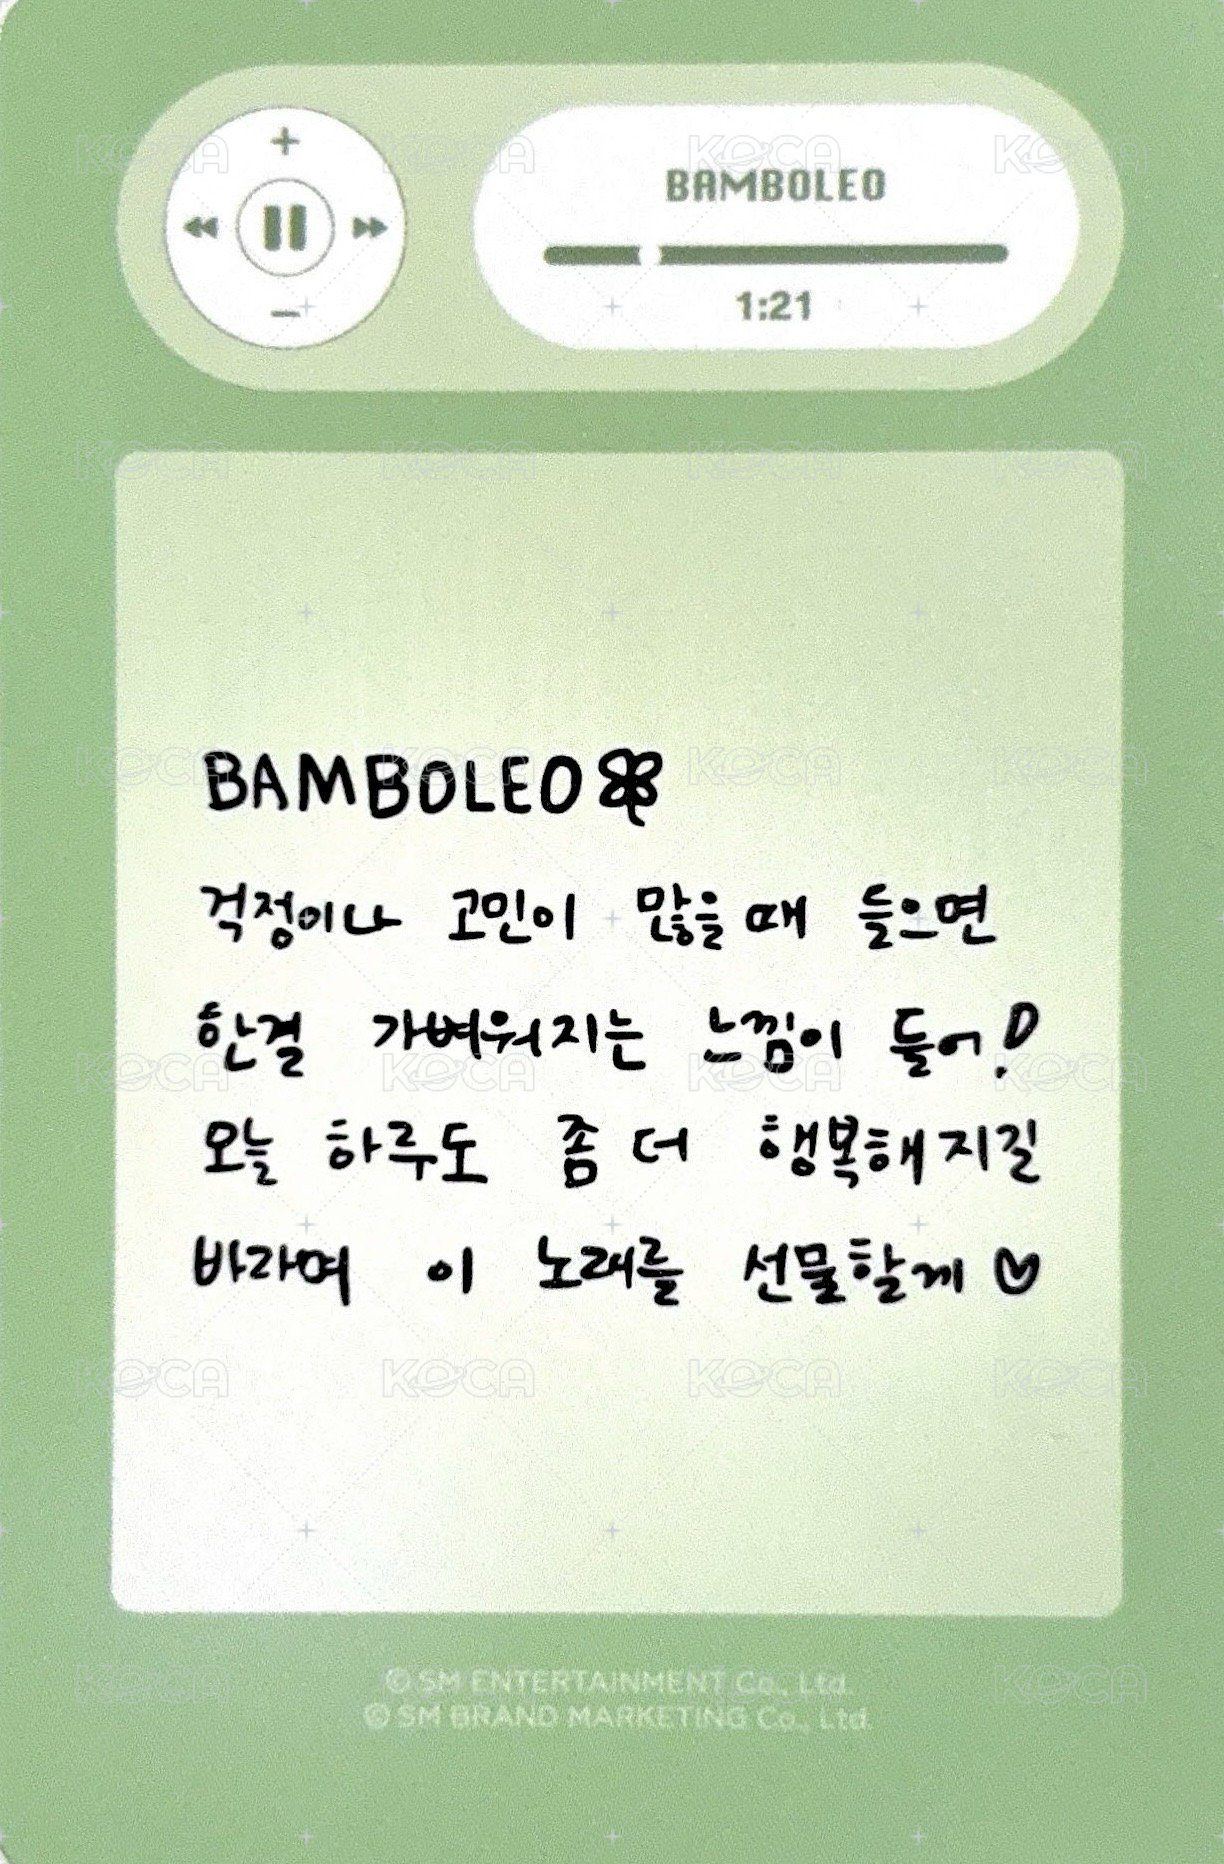 BAMBOLEO
1:21
BAMBOLEO
걱정이나 고민이 많을 때 들으면
한결 가벼워지는 느낌이 들어!
오늘 하루도 좀 더 행복해지길
바라며 이 노래를 선물할게 ♡
© SM ENTERTAINMENT Co., Ltd.
© SM BRAND MARKETING Co., Ltd.
KOCA